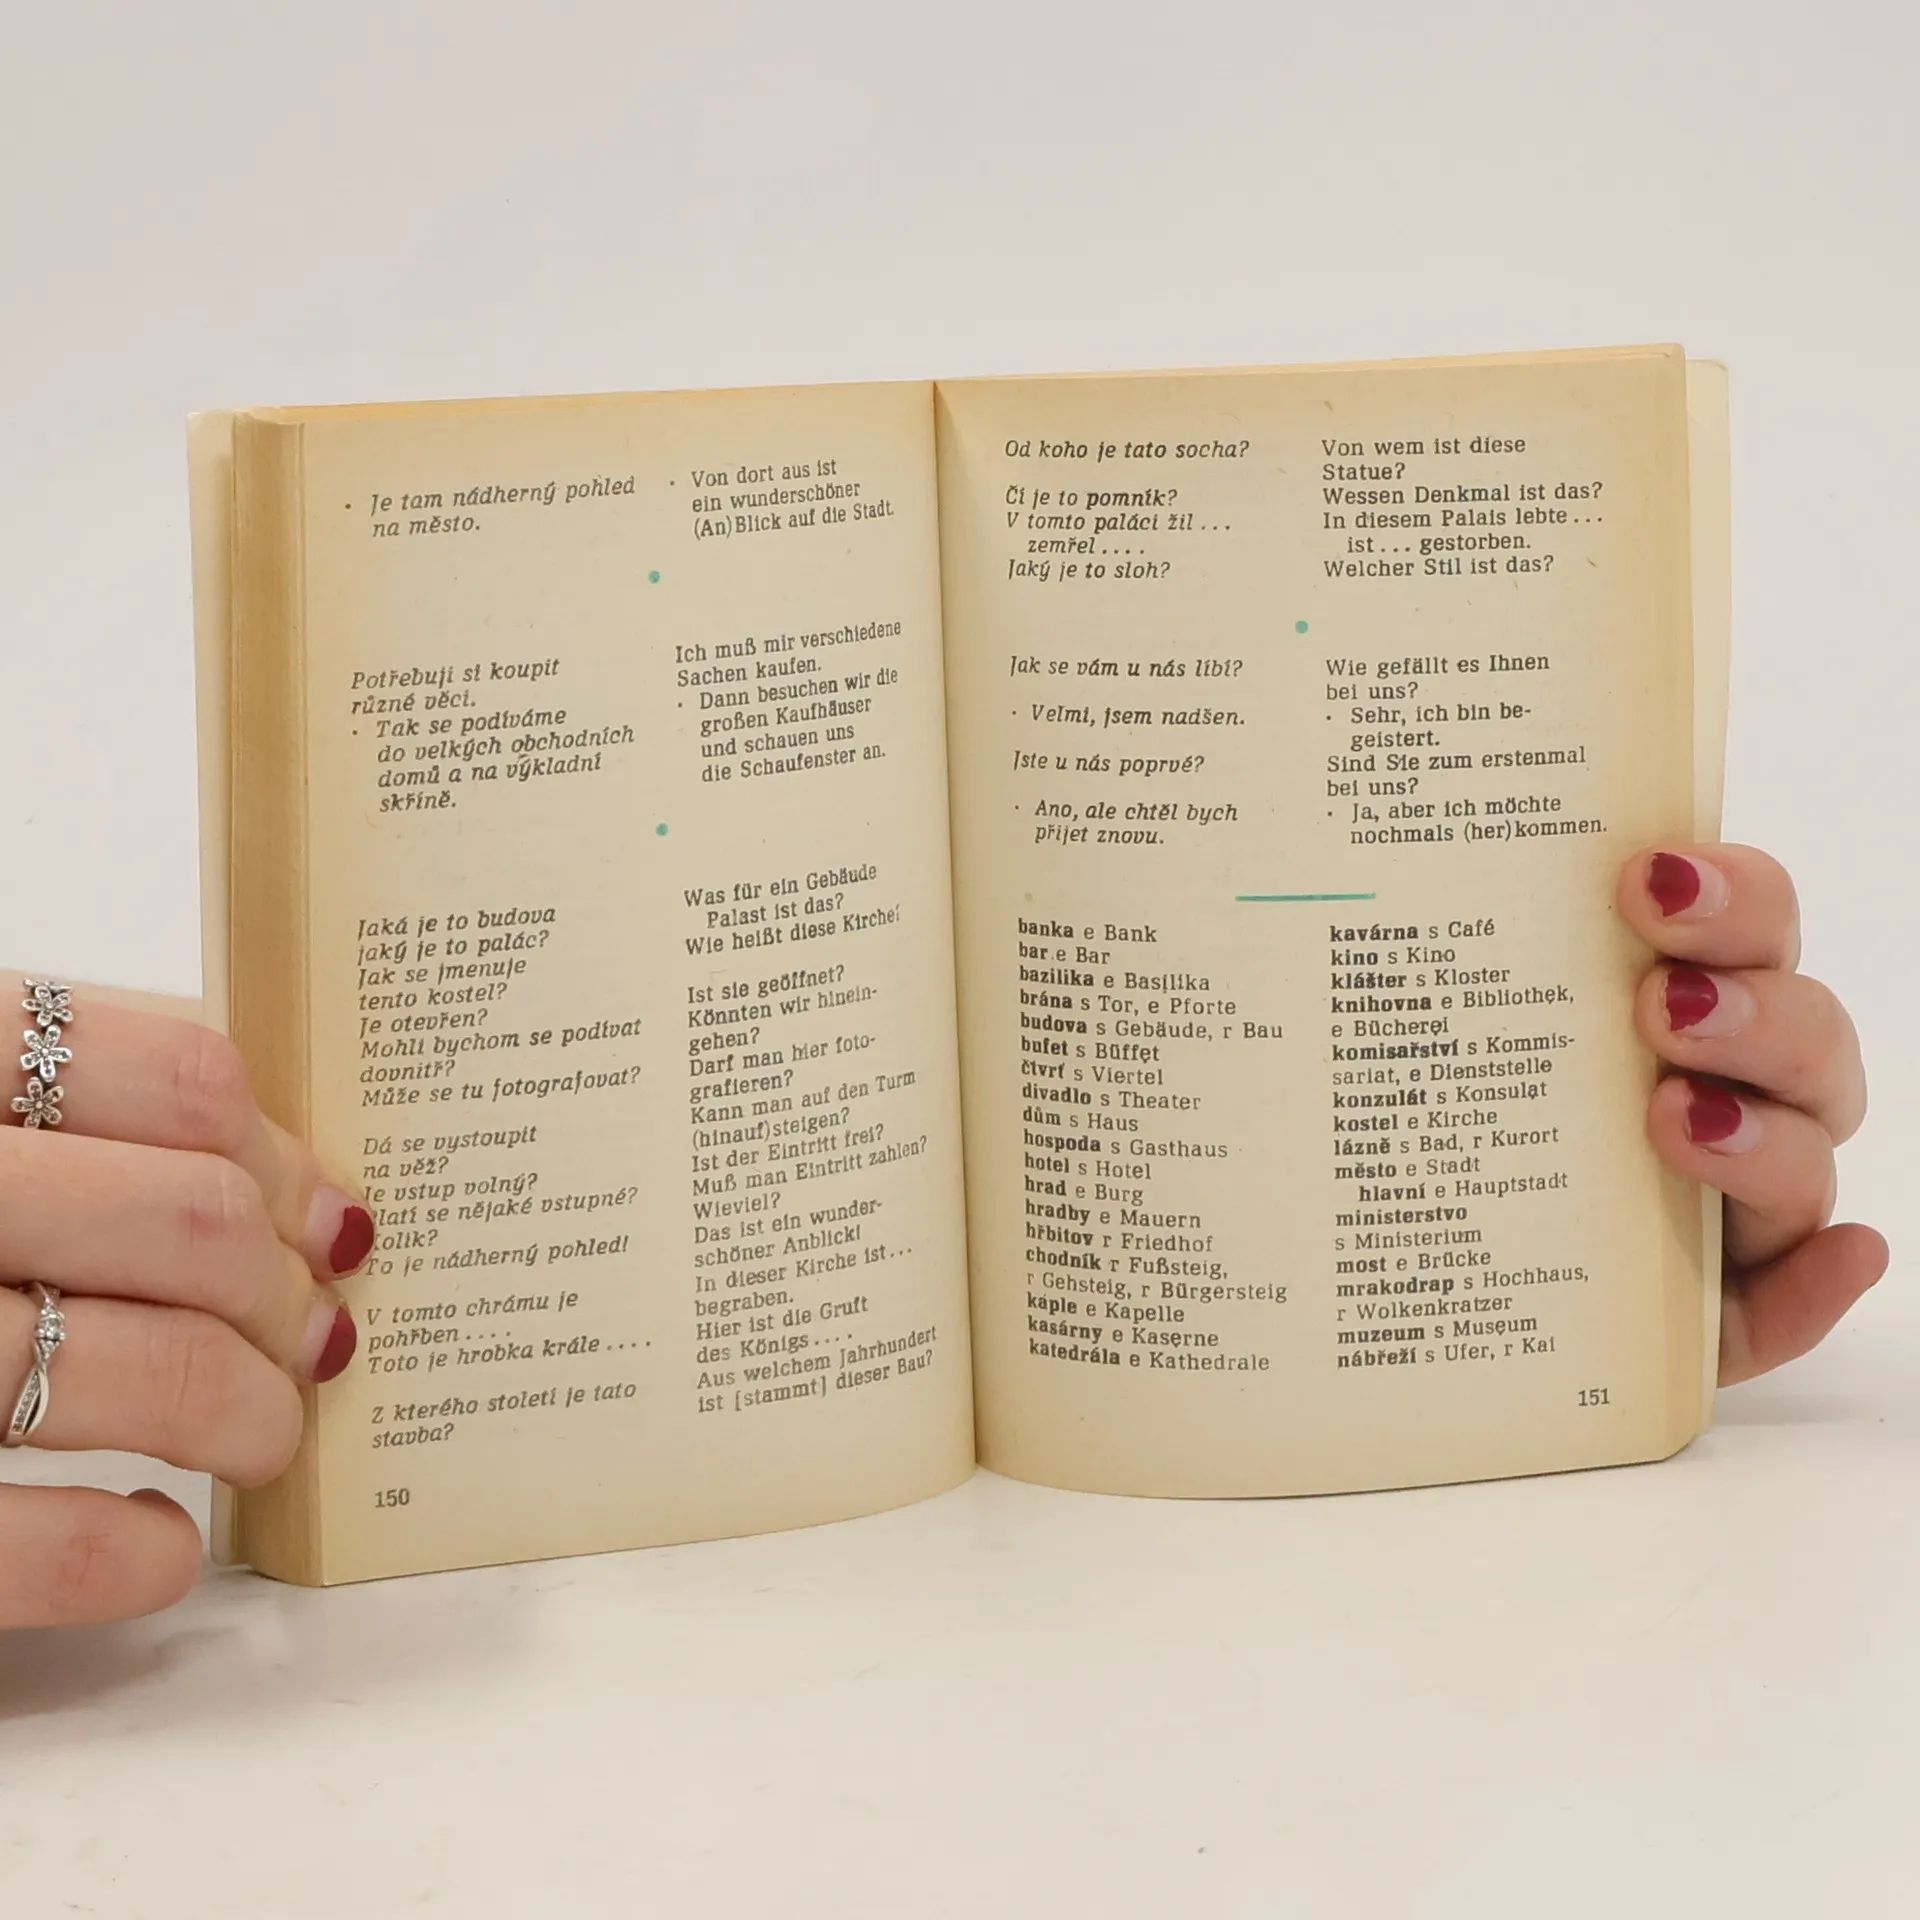 • Je tam nádherný pohled
na město.
• Von dort aus ist
ein wunderschöner
(An)Blick auf die Stadt.
Potřebuji si koupit
různé věci.
• Tak se podíváme
do velkých obchodních
domů a na výkladní
skříně.
Ich muß mir verschiedene
Sachen kaufen.
• Dann besuchen wir die
großen Kaufhäuser
und schauen uns
die Schaufenster an.
Jaká je to budova
jaký je to palác?
Jak se jmenuje
tento kostel?
Je otevřen?
Mohli bychom se podívat
dovnitř?
Může se tu fotografovat?
Dá se vystoupit
na věž?
Je vstup volný?
latí se nějaké vstupné?
olik?
To je nádherný pohled!
V tomto chrámu je
pohřben....
Toto je hrobka krále....
Z kterého století je tato
stavba?
Was für ein Gebäude
Palast ist das?
Wie heißt diese Kirche?
Ist sie geöffnet?
Könnten wir hinein-
gehen?
Darf man hier foto-
grafieren?
Kann man auf den Turm
(hinauf)steigen?
Ist der Eintritt frei?
Muß man Eintritt zahlen?
Wieviel?
Das ist ein wunder-
schöner Anblick!
In dieser Kirche ist...
begraben.
Hier ist die Gruft
des Königs....
Aus welchem Jahrhundert
ist [stammt] dieser Bau?
150
Od koho je tato socha?
Čí je to pomník?
V tomto paláci žil...
zemřel....
Jaký je to sloh?
Von wem ist diese
Statue?
Wessen Denkmal ist das?
In diesem Palais lebte...
ist... gestorben.
Welcher Stil ist das?
Jak se vám u nás líbí?
• Velmi, jsem nadšen.
Jste u nás poprvé?
• Ano, ale chtěl bych
přijet znovu.
Wie gefällt es Ihnen
bei uns?
• Sehr, ich bin be-
geistert.
Sind Sie zum erstenmal
bei uns?
• Ja, aber ich möchte
nochmals (her)kommen.
banka e Bank
bar e Bar
bazilika e Basilika
brána s Tor, e Pforte
budova s Gebäude, r Bau
bufet s Büffet
čtvrť s Viertel
divadlo s Theater
dům s Haus
hospoda s Gasthaus
hotel s Hotel
hrad e Burg
hradby e Mauern
hřbitov r Friedhof
chodník r Fußsteig,
r Gehsteig, r Bürgersteig
kaple e Kapelle
kasárny e Kaserne
katedrála e Kathedrale
kavárna s Café
kino s Kino
klášter s Kloster
knihovna e Bibliothek,
e Bücherei
komisařství s Kommis-
sariat, e Dienststelle
konzulát s Konsulat
kostel e Kirche
lázně s Bad, r Kurort
město e Stadt
hlavní e Hauptstadt
ministerstvo
s Ministerium
most e Brücke
mrakodrap s Hochhaus,
r Wolkenkratzer
muzeum s Museum
nábřeží s Ufer, r Kai
151